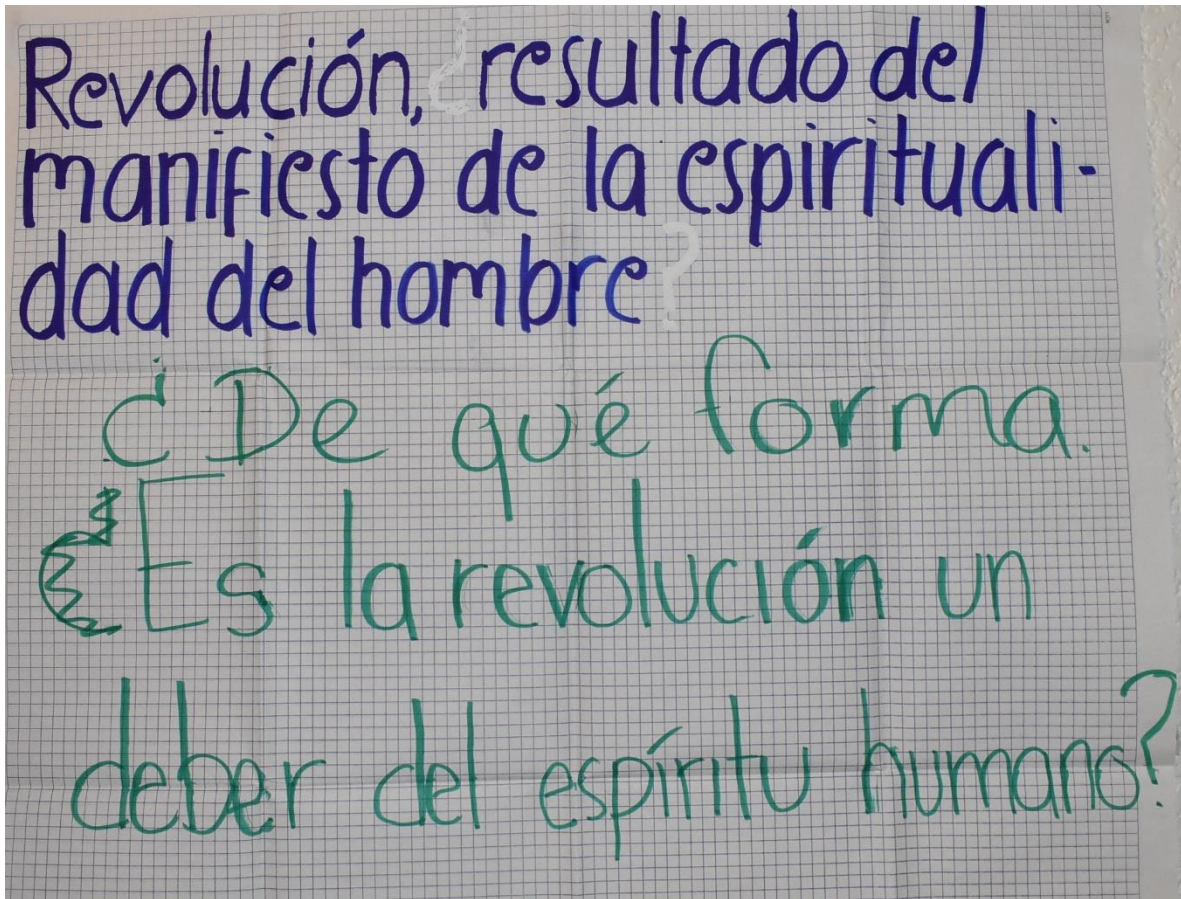 Revolución, ¿resultado del
manifiesto de la espirituali-
dad del hombre?
¿De qué forma.
¿Es la revolución un
deber del espíritu humano?